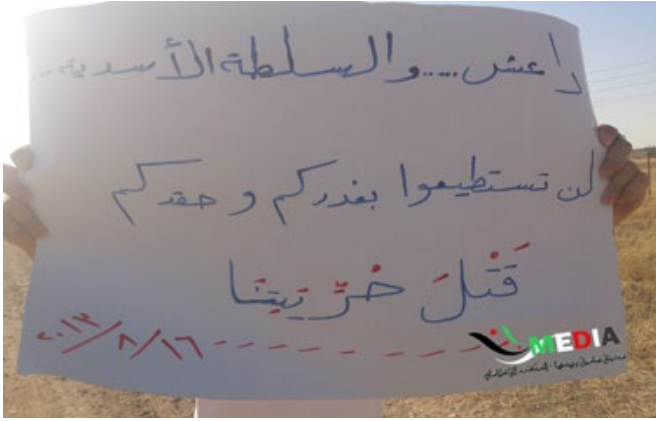 داعش.....والسلطة الأسدية...
لن تستطيعوا بغدركم وحقدكم
قَتْلَ حُرِّيتِنا
٢٠١٣/٨/١٦
MEDIA